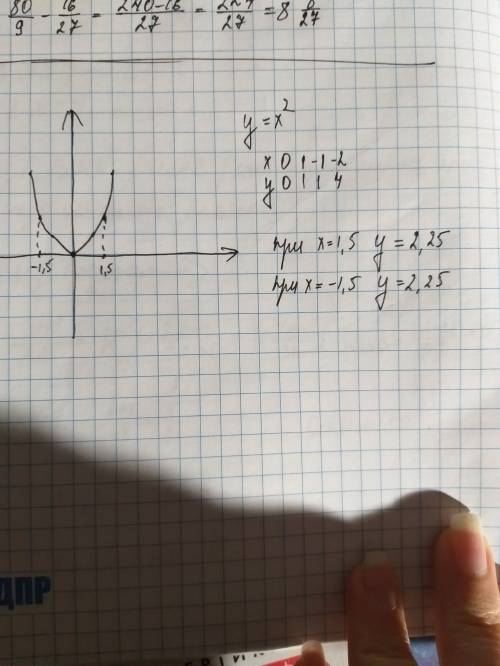 80/9 - 16/27 = 240-16/27 = 224/27 = 8 8/27
y = x²
x 0 1 -1 -2
y 0 1 1 4
при x=1,5 y=2,25
при x=-1,5 y=2,25
-1,5 1,5
ДПР